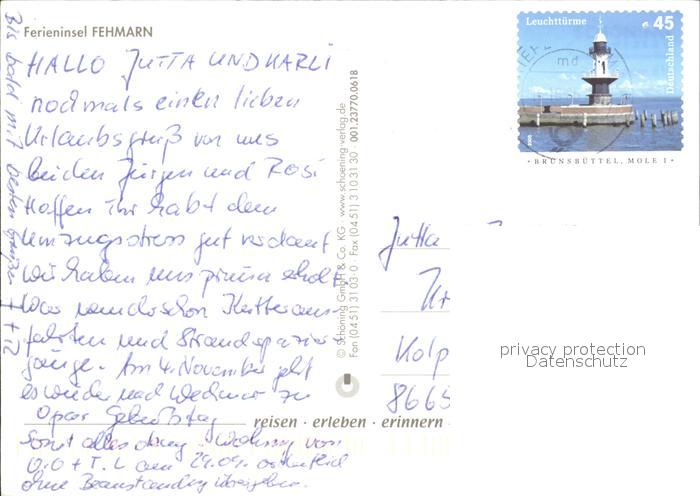 Ferieninsel FEHMARN
HALLO JUTTA UND KARLI
nochmals einen lieben
Urlaubsgruß von uns
beiden Jürgen und Rosi
Hoffen Ihr habt den
Umzugsstress gut verdaut
wir haben uns prima erholt
War wunderschön Kutteraus-
fahrten und Strandspazier-
gänge. Am 4. November geht
es wieder nach Weimar zu
Opas Geburtstag
Sonst alles okay. Wohnung von
O.O + T. L am 29.09. ordentlich
ohne Beanstandung übergeben.
Bis bald mit besten Grüßen
reisen · erleben · erinnern
© Schöning GmbH & Co. KG · www.schoening-verlag.de
Fon (04 51) 3 10 3-0 · Fax (04 51) 3 10 31 30 · 001.23770.0618
Leuchttürme
45
Deutschland
BRUNSBÜTTEL, MOLE 1
Jutta
Kolp
8665
privacy protection
Datenschutz